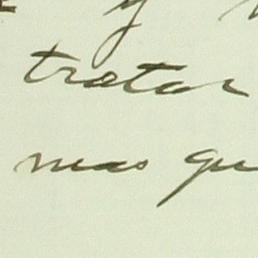 y
tratar
mas qu